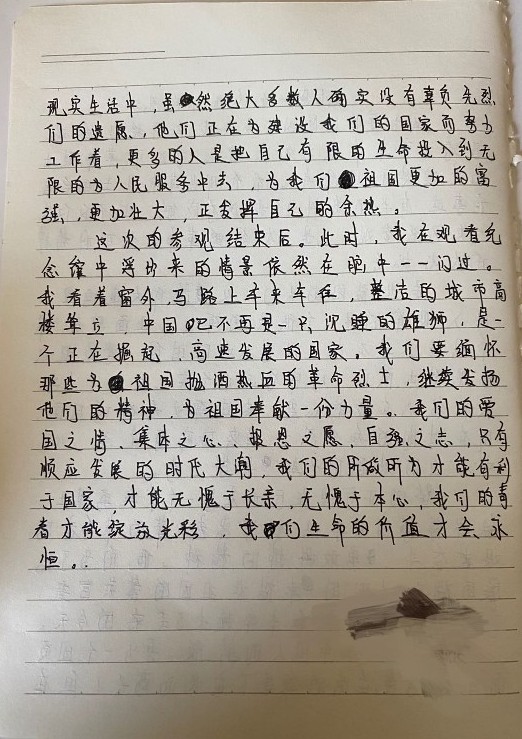 现实生活中，虽然绝大多数人确实没有辜负先烈
们的遗愿，他们正在为建设我们的国家而努力
工作着，更多的人是把自己有限的生命投入到无
限的为人民服务中去，为我们祖国更加的富
强，更加壮大，正发挥自己的余热。
这次的参观结束后。此时，我在观看纪
念馆中浮现出来的情景依然在脑中一一闪过。
我看着窗外，马路上车来车往，整洁的城市高
楼耸立，中国已不再是一只沉睡的雄狮，是一
个正在掘起，高速发展的国家。我们要缅怀
那些为祖国抛洒热血的革命烈士，继续发扬
他们的精神，为祖国奉献一份力量。我们的爱
国之情、集体之心、报恩之愿、自强之志，只有
顺应发展的时代大潮，我们的所做所为才能有利
于国家，才能无愧于长亲，无愧于本心，我们的青
春才能绽放光彩，我们生命的价值才会永
恒。